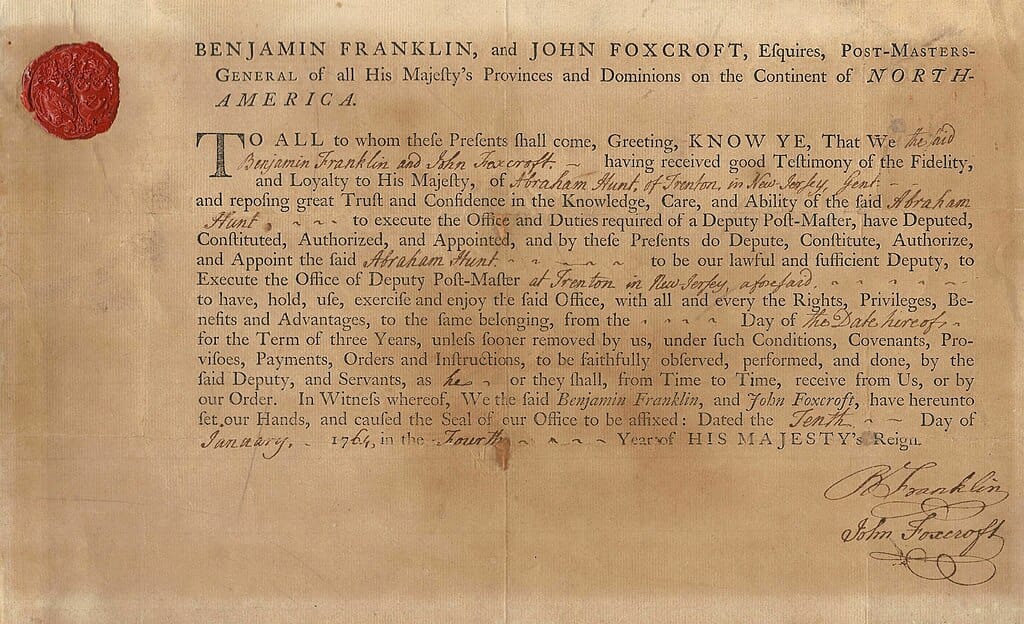 BENJAMIN FRANKLIN, and JOHN FOXCROFT, Eſquires, POST-MASTERS-
GENERAL of all His Majeſty's Provinces and Dominions on the Continent of NORTH-
AMERICA.
TO ALL to whom theſe Preſents ſhall come, Greeting, KNOW YE, That We the ſaid
Benjamin Franklin and John Foxcroft. ~ having received good Teſtimony of the Fidelity,
and Loyalty to His Majeſty, of Abraham Hunt, of Trenton, in New Jerſey, Gent. ~
and repoſing great Truſt and Confidence in the Knowledge, Care, and Ability of the ſaid Abraham
Hunt, ~ ~ ~ to execute the Office and Duties required of a Deputy Poſt-Maſter, have Deputed,
Conſtituted, Authorized, and Appointed, and by theſe Preſents do Depute, Conſtitute, Authorize,
and Appoint the ſaid Abraham Hunt ~ ~ ~ ~ ~ to be our lawful and ſufficient Deputy, to
Execute the Office of Deputy Poſt-Maſter at Trenton in New Jerſey, aforeſaid. ~ ~ ~ ~ ~
to have, hold, uſe, exerciſe and enjoy the ſaid Office, with all and every the Rights, Privileges, Be-
nefits and Advantages, to the ſame belonging, from the ~ ~ ~ ~ Day of the Date hereof, ~
for the Term of three Years, unleſs ſooner removed by us, under ſuch Conditions, Covenants, Pro-
viſoes, Payments, Orders and Inſtructions, to be faithfully obſerved, performed, and done, by the
ſaid Deputy, and Servants, as he ~ or they ſhall, from Time to Time, receive from Us, or by
our Order. In Witneſs whereof, We the ſaid Benjamin Franklin, and John Foxcroft, have hereunto
ſet our Hands, and cauſed the Seal of our Office to be affixed: Dated the Tenth ~ ~ Day of
January, ~ 1764, in the Fourth ~ ~ ~ ~ Year of HIS MAJESTY's Reign.
B Franklin
John Foxcroft